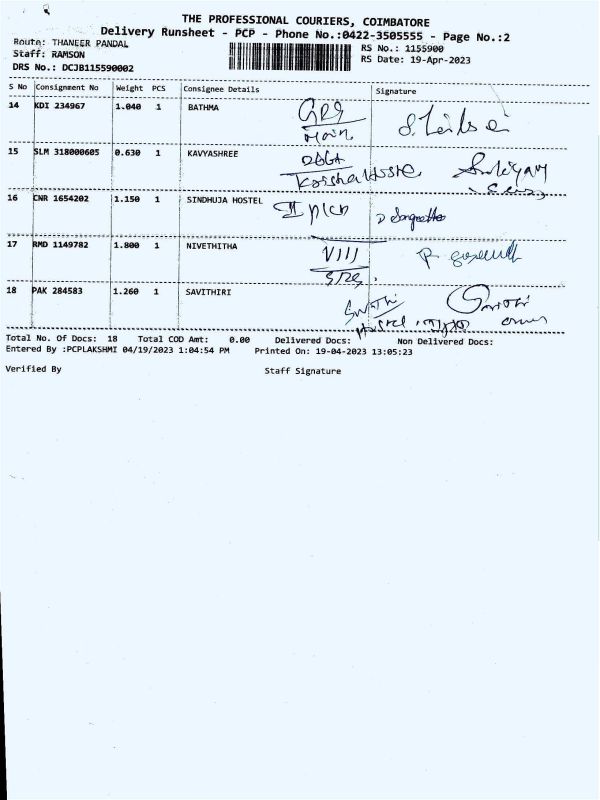 THE PROFESSIONAL COURIERS, COIMBATORE
Delivery Runsheet - PCP - Phone No.:0422-3505555 - Page No.:2
Route: THANEER PANDAL
RS No.: 1155900
Staff: RAMSON
RS Date: 19-Apr-2023
DRS No.: DCJB115590002
S No Consignment No Weight PCS Consignee Details Signature
14 KDI 234967 1.040 1 BATHMA
15 SLM 318000605 0.630 1 KAVYASHREE
16 CNR 1654202 1.150 1 SINDHUJA HOSTEL
17 RMD 1149782 1.800 1 NIVETHITHA VIII
18 PAK 284583 1.260 1 SAVITHIRI
Total No. Of Docs: 18 Total COD Amt: 0.00 Delivered Docs: Non Delivered Docs:
Entered By :PCPLAKSHMI 04/19/2023 1:04:54 PM Printed On: 19-04-2023 13:05:23
Verified By Staff Signature